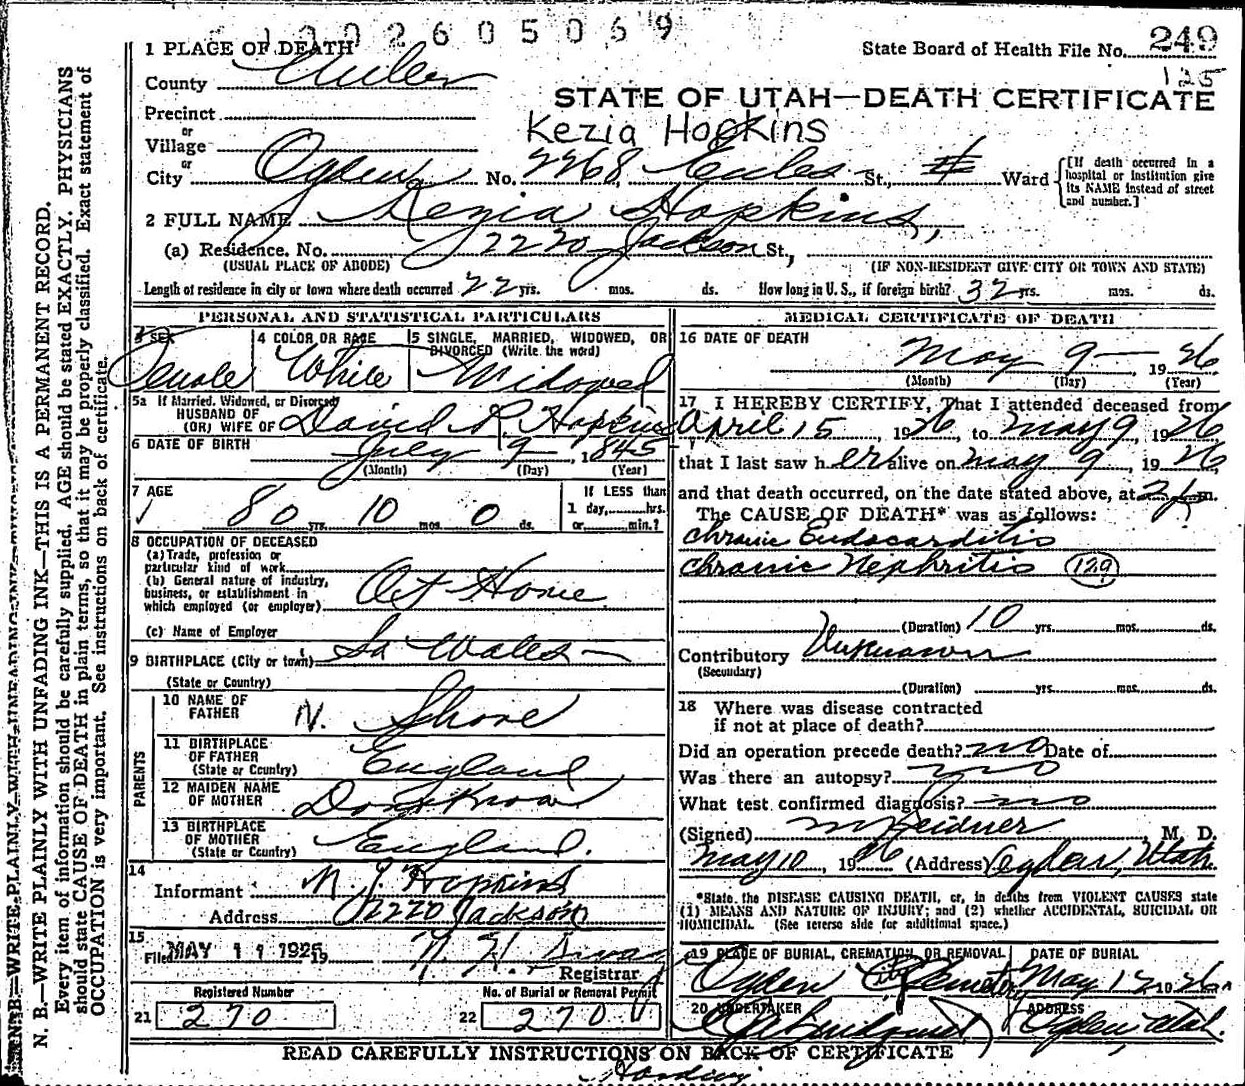 1002605069
1 PLACE OF DEATH
State Board of Health File No. 249
125
County Weber
STATE OF UTAH—DEATH CERTIFICATE
Precinct
Kezia Hopkins
or
Village
or
City Ogden No. 2268 Eccles St., Ward
[If death occurred in a hospital or institution give its NAME instead of street and number.]
2 FULL NAME Kezia Hopkins,
(a) Residence. No. 2220 Jackson St.,
(USUAL PLACE OF ABODE) (IF NON-RESIDENT GIVE CITY OR TOWN AND STATE)
Length of residence in city or town where death occurred 22 yrs. mos. ds. How long in U. S., if foreign birth? 32 yrs. mos. ds.
PERSONAL AND STATISTICAL PARTICULARS
3 SEX 4 COLOR OR RACE 5 SINGLE, MARRIED, WIDOWED, OR DIVORCED (Write the word)
Female White Widowed
5a If Married, Widowed, or Divorced
HUSBAND OF
(OR) WIFE OF David R Hopkins
6 DATE OF BIRTH July 9 1845
(Month) (Day) (Year)
7 AGE
80 yrs. 10 mos. 0 ds.
If LESS than
1 day, hrs.
or min.?
8 OCCUPATION OF DECEASED
(a) Trade, profession or
particular kind of work
(b) General nature of industry,
business, or establishment in
which employed (or employer) At Home
(c) Name of Employer
9 BIRTHPLACE (City or town) So Wales
(State or Country)
PARENTS
10 NAME OF
FATHER N. Shore
11 BIRTHPLACE
OF FATHER
(State or Country) England
12 MAIDEN NAME
OF MOTHER Dont Know
13 BIRTHPLACE
OF MOTHER
(State or Country) England.
14
Informant N J Hopkins
Address 2220 Jackson
15
Filed MAY 11 1926 19
Registrar
Registered Number No. of Burial or Removal Permit
21 270 22 270
MEDICAL CERTIFICATE OF DEATH
16 DATE OF DEATH
May 9 — 1926
(Month) (Day) (Year)
17 I HEREBY CERTIFY, That I attended deceased from
April 15, 1926, to May 9, 1926
that I last saw her alive on May 9, 1926
and that death occurred, on the date stated above, at 2 m.
The CAUSE OF DEATH* was as follows:
Chronic Endocarditis
Chronic Nephritis (129)
(Duration) 10 yrs. mos. ds.
Contributory Unknown
(Secondary)
(Duration) yrs. mos. ds.
18 Where was disease contracted
if not at place of death?
Did an operation precede death? no Date of
Was there an autopsy? no
What test confirmed diagnosis? no
(Signed) , M. D.
May 10, 1926 (Address) Ogden, Utah
*State the DISEASE CAUSING DEATH, or, in deaths from VIOLENT CAUSES state
(1) MEANS AND NATURE OF INJURY; and (2) whether ACCIDENTAL, SUICIDAL OR
HOMICIDAL. (See reverse side for additional space.)
19 PLACE OF BURIAL, CREMATION, OR REMOVAL DATE OF BURIAL
Ogden Cemetery May 12 1926
20 UNDERTAKER ADDRESS
Ogden, Utah.
READ CAREFULLY INSTRUCTIONS ON BACK OF CERTIFICATE
N. B.—WRITE PLAINLY WITH UNFADING INK—THIS IS A PERMANENT RECORD.
Every item of information should be carefully supplied. AGE should be stated EXACTLY. PHYSICIANS
should state CAUSE OF DEATH in plain terms, so that it may be properly classified. Exact statement of
OCCUPATION is very important. See instructions on back of certificate.